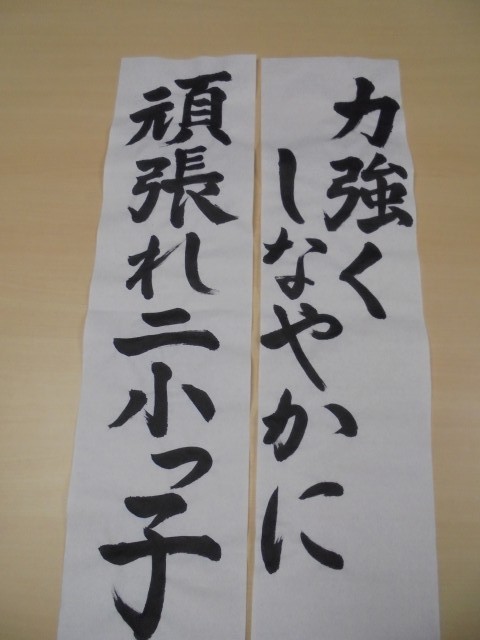 力強く
しなやかに
頑張れ二小っ子